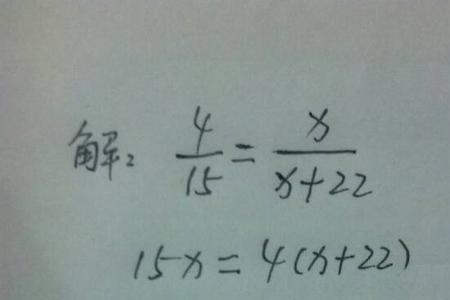 解: 4/15 = x/(x+22)
15x = 4(x+22)